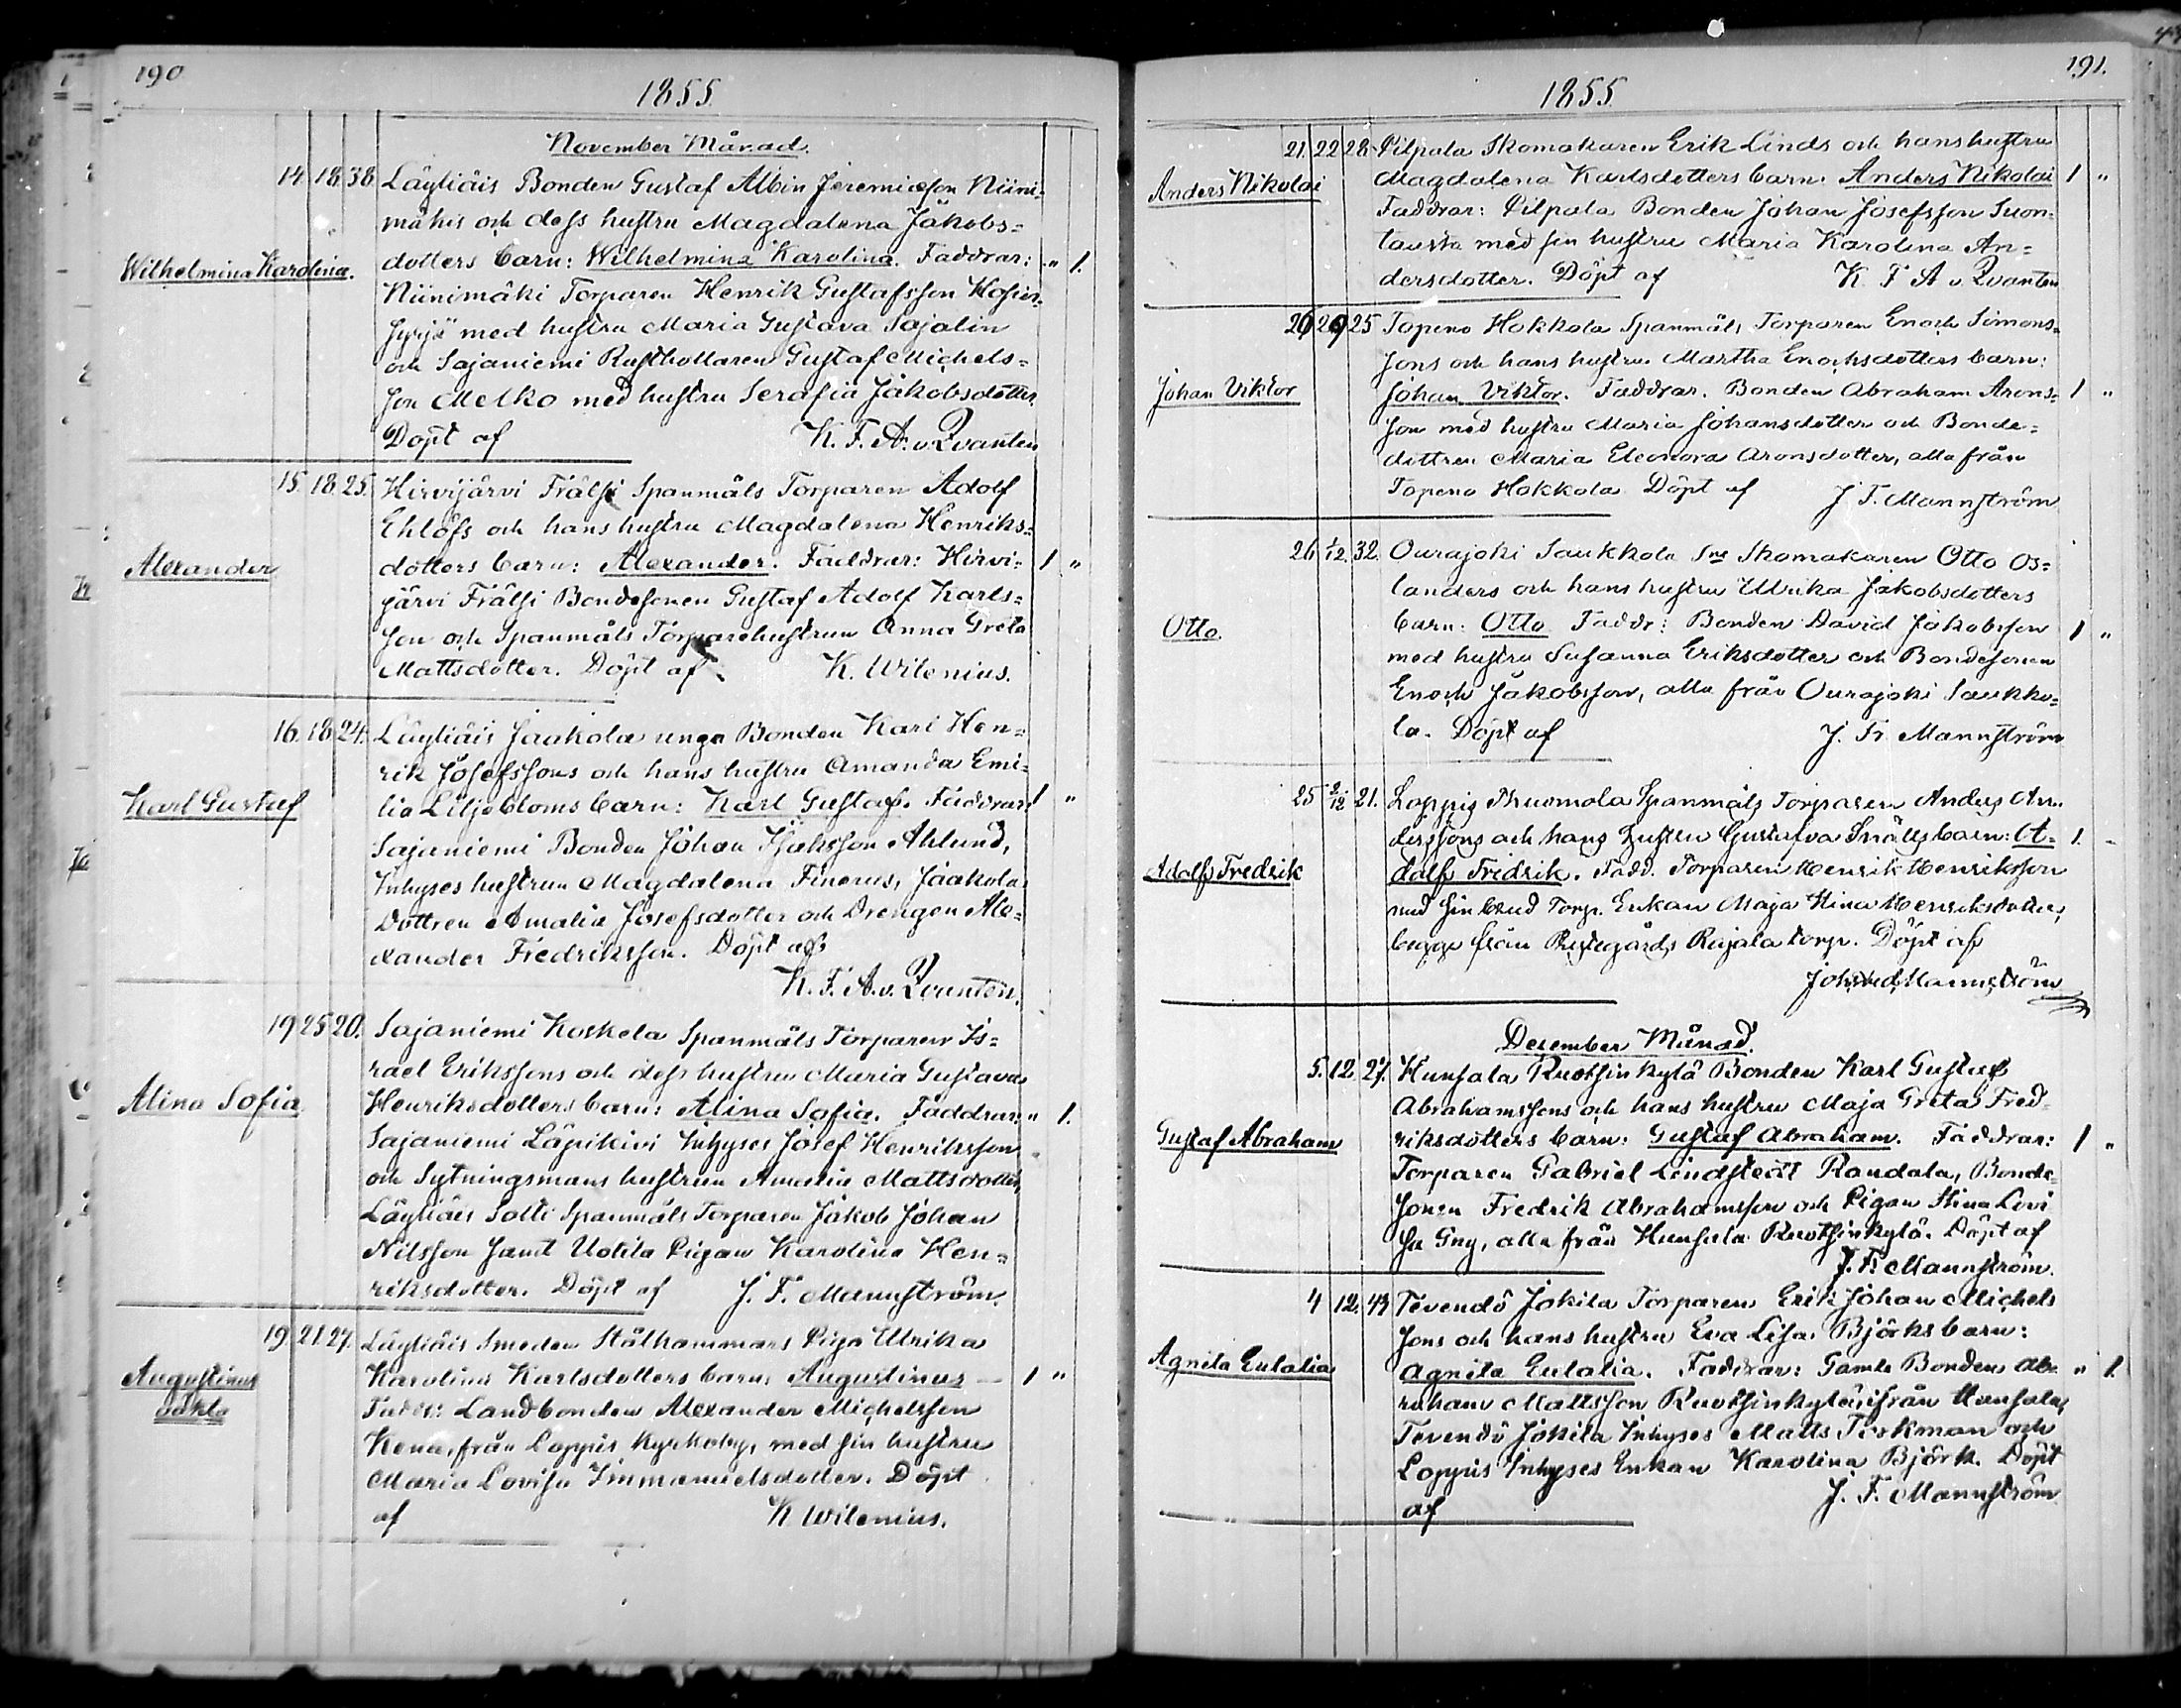 190
1855
November Månad.
14. 18. 38. Läyliäis Bonden Gustaf Albin Jeremiæson Niini-
mäkis och dess hustru Magdalena Jakobs=
Wilhelmina Karolina. dotters barn: Wilhelmina Karolina. Faddrar: " 1.
Niinimäki Torparen Henrik Gustafsson
med hustru Maria Gustava Sajalin
och Sajaniemi Rusthållaren Gustaf Michels=
son Melko med hustru Serafia Jakobsdotter.
Döpt af K. F. A. v. Qvanten
15. 18. 25. Hirvijärvi Frälsi Spanmåls Torparen Adolf
Ehlöfs och hans hustru Magdalena Henriks=
Alexander dotters barn: Alexander. Faddrar: Hirvi= 1 "
järvi Frälsi Bondesonen Gustaf Adolf Karls=
son och Spanmåls Torparehustrun Anna Greta
Mattsdotter. Döpt af K. Wilenius.
16. 18. 24. Läyliäis Jaakola unga Bonden Karl Hen=
rik Josefssons och hans hustru Amanda Emi=
Karl Gustaf lia Liljebloms barn: Karl Gustaf. Faddrar: 1 "
Sajaniemi Bonden Johan Isaksson Ahlund,
Inhyses hustrun Magdalena Finerus, Jaakola
Dottren Amalia Josefsdotter och Drengen Ale=
xander Fredriksson. Döpt af
K. F. A. v. Qvanten.
19 25 20. Sajaniemi Koskela Spanmåls Torparen Is=
rael Erikssons och dess hustru Maria Gustava
Alina Sofia Henriksdotters barn: Alina Sofia. Faddrar: " 1.
Sajaniemi Läpikivi Inhyses Josef Henriksson
och Sytningsmans hustrun Amalia Mattsdotter,
Läyliäis Solti Spanmåls Torparen Jakob Johan
Nilsson samt Uotila Pigan Karolina Hen=
riksdotter. Döpt af J. F. Mannström.
19. 21. 27. Läyliäis Smeden Stålhammars Piga Ullrika
Augustinus Karolina Karlsdotters barn, Augustinus — 1 "
oäkta Faddr: Landbonden Alexander Michelsson
Kena, från Loppis Kyrkoby, med sin hustru
Maria Lovisa Immanuelsdotter. Döpt
af K. Wilenius.
191.
1855
21. 22 28. Pilpala Skomakaren Erik Linds och hans hustru
Anders Nikolai Magdalena Karlsdotters barn: Anders Nikolai 1 "
Faddrar: Pilpala Bonden Johan Josefsson Suon=
tausta med sin hustru Maria Karolina An=
dersdotter. Döpt af K. F. A v. Qvanten
29 25 Topeno Hokkola Spanmåls Torparen Enoch Simons=
sons och hans hustru Martha Enochsdotters barn:
Johan Viktor Johan Viktor. Faddrar. Bonden Abraham Arons= 1 "
son med hustru Maria Johansdotter och Bonde=
dottren Maria Eleonora Aronsdotter, alla från
Topeno Hokkola Döpt af J. F. Mannström
26 1/12. 32. Ourajoki Saukkola Sne Skomakaren Otto Os=
landers och hans hustru Ullrika Jakobsdotters
Otto. barn: Otto Faddr: Bonden David Jakobsson 1 "
med hustru Susanna Eriksdotter och Bondesonen
Enoch Jakobsson, alla från Ourajoki Saukko=
la. Döpt af J. Fr. Mannström
25 2/12 21. Loppis Thuomola Spanmåls Torparen Anders An-
derssons och hans hustru Gustafva Snälls barn: A= 1. "
Adolf Fredrik dolf Fredrik. Fadd. Torparen Henrik Henriksson
med sin brud Torp. Enkan Maja Stina Henriksdotter,
begge från Prestegårds Rajala torp. Döpt af
Joh. Fred. Mannström
December Månad.
5. 12. 27. Hunsala Ruotsinkylä Bonden Karl Gustaf
Abrahamssons och hans hustru Maja Greta Fred=
Gustaf Abraham riksdotters barn: Gustaf Abraham. Faddrar: 1 "
Torparen Gabriel Lindstedt Randala, Bonde=
sonen Fredrik Abrahamsson och Pigan Stina Lovi
sa Gny, alla från Hunsala Ruotsinkylä. Döpt af
J. F. Mannström.
4 12. 43 Tevendö Jokila Torparen Erik Johan Michels
sons och hans hustru Eva Lisa Björks barn:
Agnita Eulalia Agnita Eulalia. Faddrar: Gamle Bonden Ab= " 1.
raham Mattsson Ruotsinkylä ifrån Hunsala,
Tevendö Jokila Inhyses Matts Tirkman och
Loppis Inhyses Enkan Karolina Björk. Döpt
af J. F. Mannström